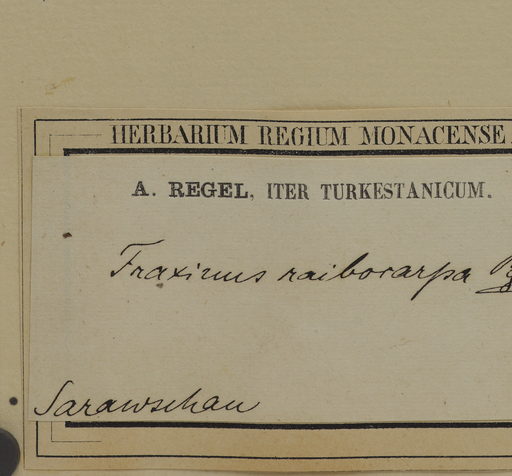 HERBARIUM REGIUM MONACENSE.
A. REGEL, ITER TURKESTANICUM.
Fraxinus raibocarpa
Sarawschan